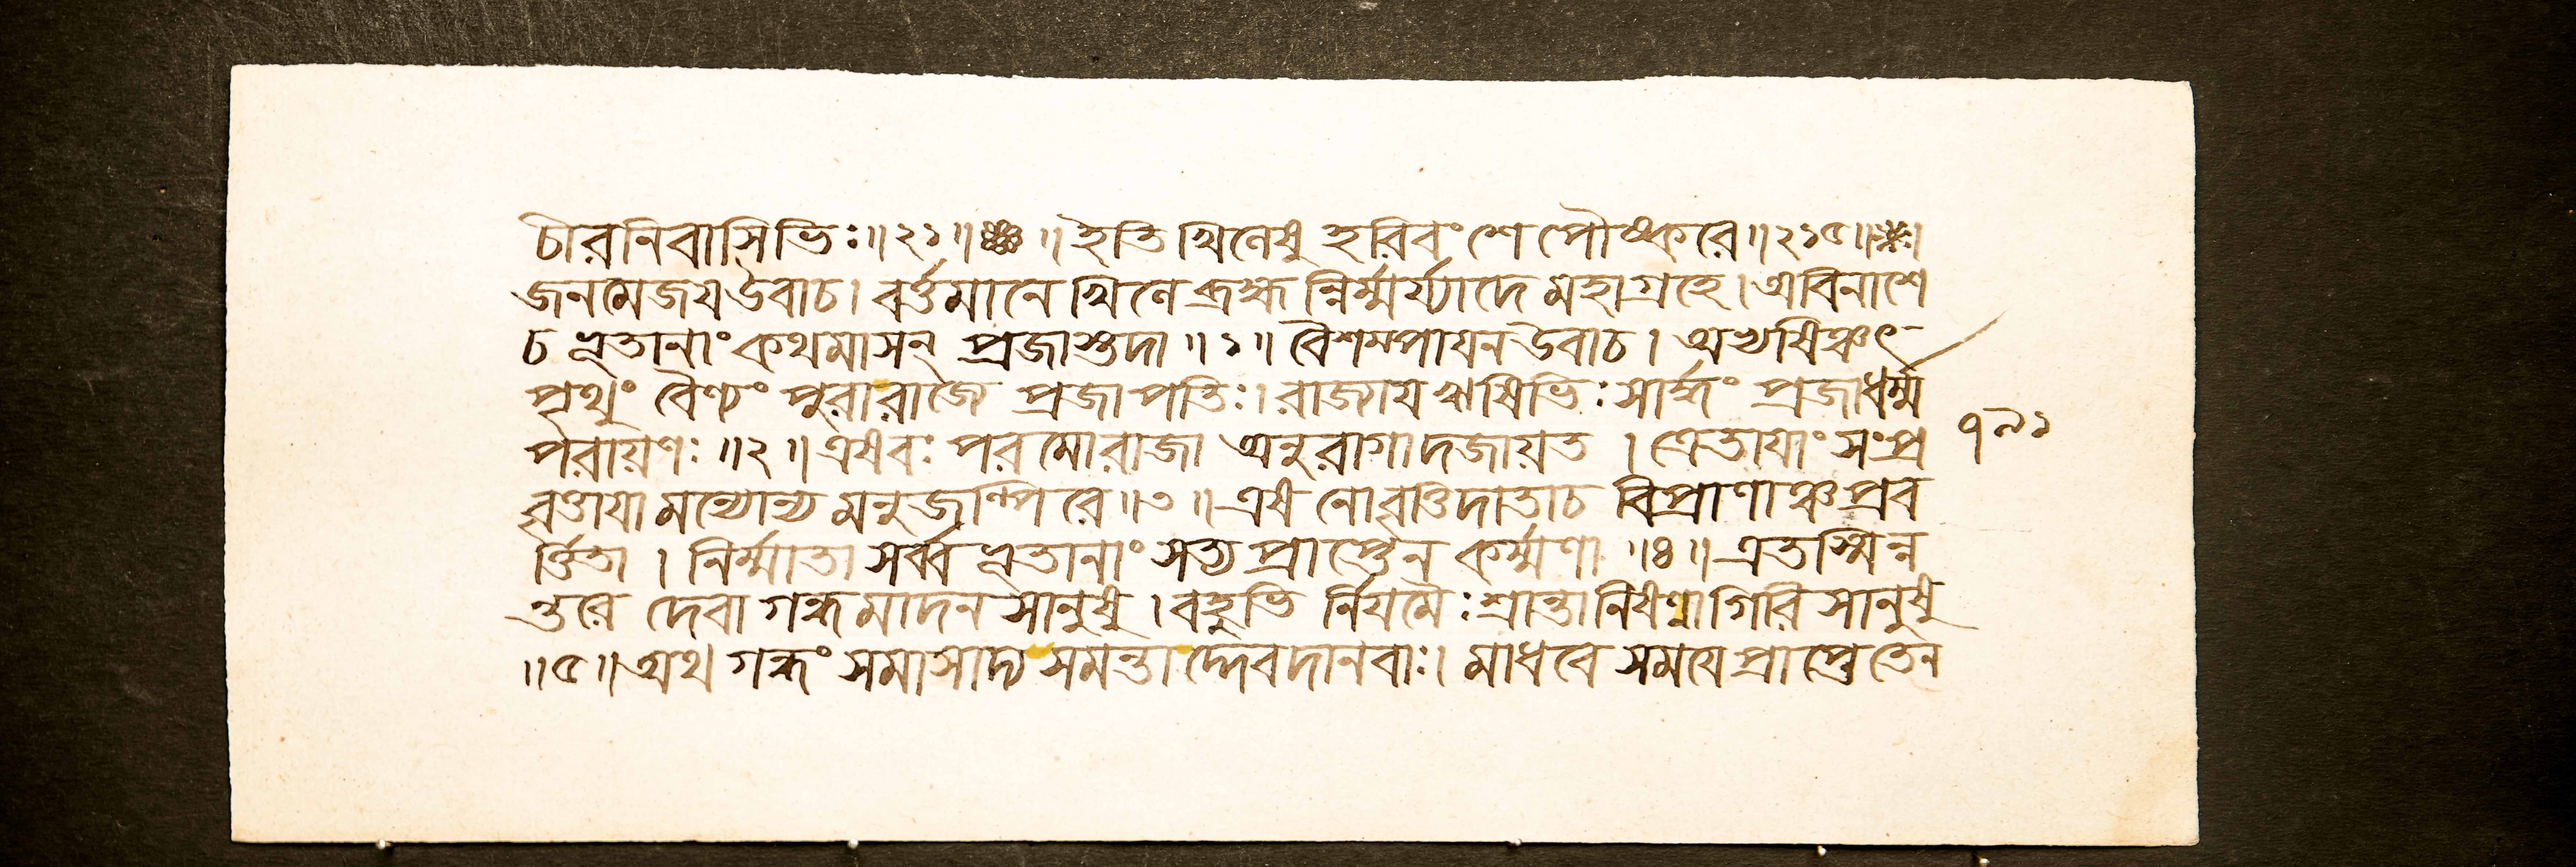 চীরনিবাসিভিঃ॥২১॥ ॥ইতি খিলেষু হরিবংশে পৌষ্করে॥২১৫॥
জনমেজয়উবাচ। বর্ত্তমানে খিলে ব্রহ্ম ন্নির্ম্মর্য্যাদে মহাগ্রহে। অবিনাশে
চ ভূতানাং কথমাসন্ প্রজাস্তদা॥১॥ বৈশম্পায়ন উবাচ। অখষিঞ্চৎ
পৃথুং বৈণ্যং পুরারাজ্যে প্রজাপতিঃ। রাজ্যায় ঋষিভিঃ সার্দ্ধং প্রজাধর্ম্ম
পরায়ণঃ॥২॥ এষবঃ পরমোরাজা অনুরাগাদজায়ত। ত্রেতায়াং সংপ্র
বৃত্তায়ামন্যোন্য মনুজল্পিরে॥৩॥ এষ নোবৃত্তিদাতাচ বিপ্রাণাঞ্চ প্রব
র্ত্তিতা। নির্ম্মাতা সর্ব্ব ভূতানাং সত্য প্রাপ্তেন কর্ম্মণা॥৪॥ এতস্মিন্ন
ন্তরে দেবা গন্ধমাদন সানুষু। বহুভি র্নিয়মৈঃ শ্রান্তা নিষণ্ণা গিরি সানুষু
॥৫॥ অথ গন্ধং সমাসাদ্য সমন্তা দ্দেবদানবাঃ। মাধবে সময়ে প্রাপ্তে তেন
৭৯১